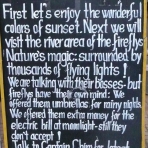 First let's enjoy the wonderful
colors of sunset. Next we will
visit the river area of the fireflys
Nature's magic: surrounded by
thousands of "flying lights"!
We are talking with their bosses - but
fireflys have "their own mind": We
offered them umbrellas for rainy nights
We offered them extra money for the
electric bill at moonlight - still they
don't accept!
Talk to Captain